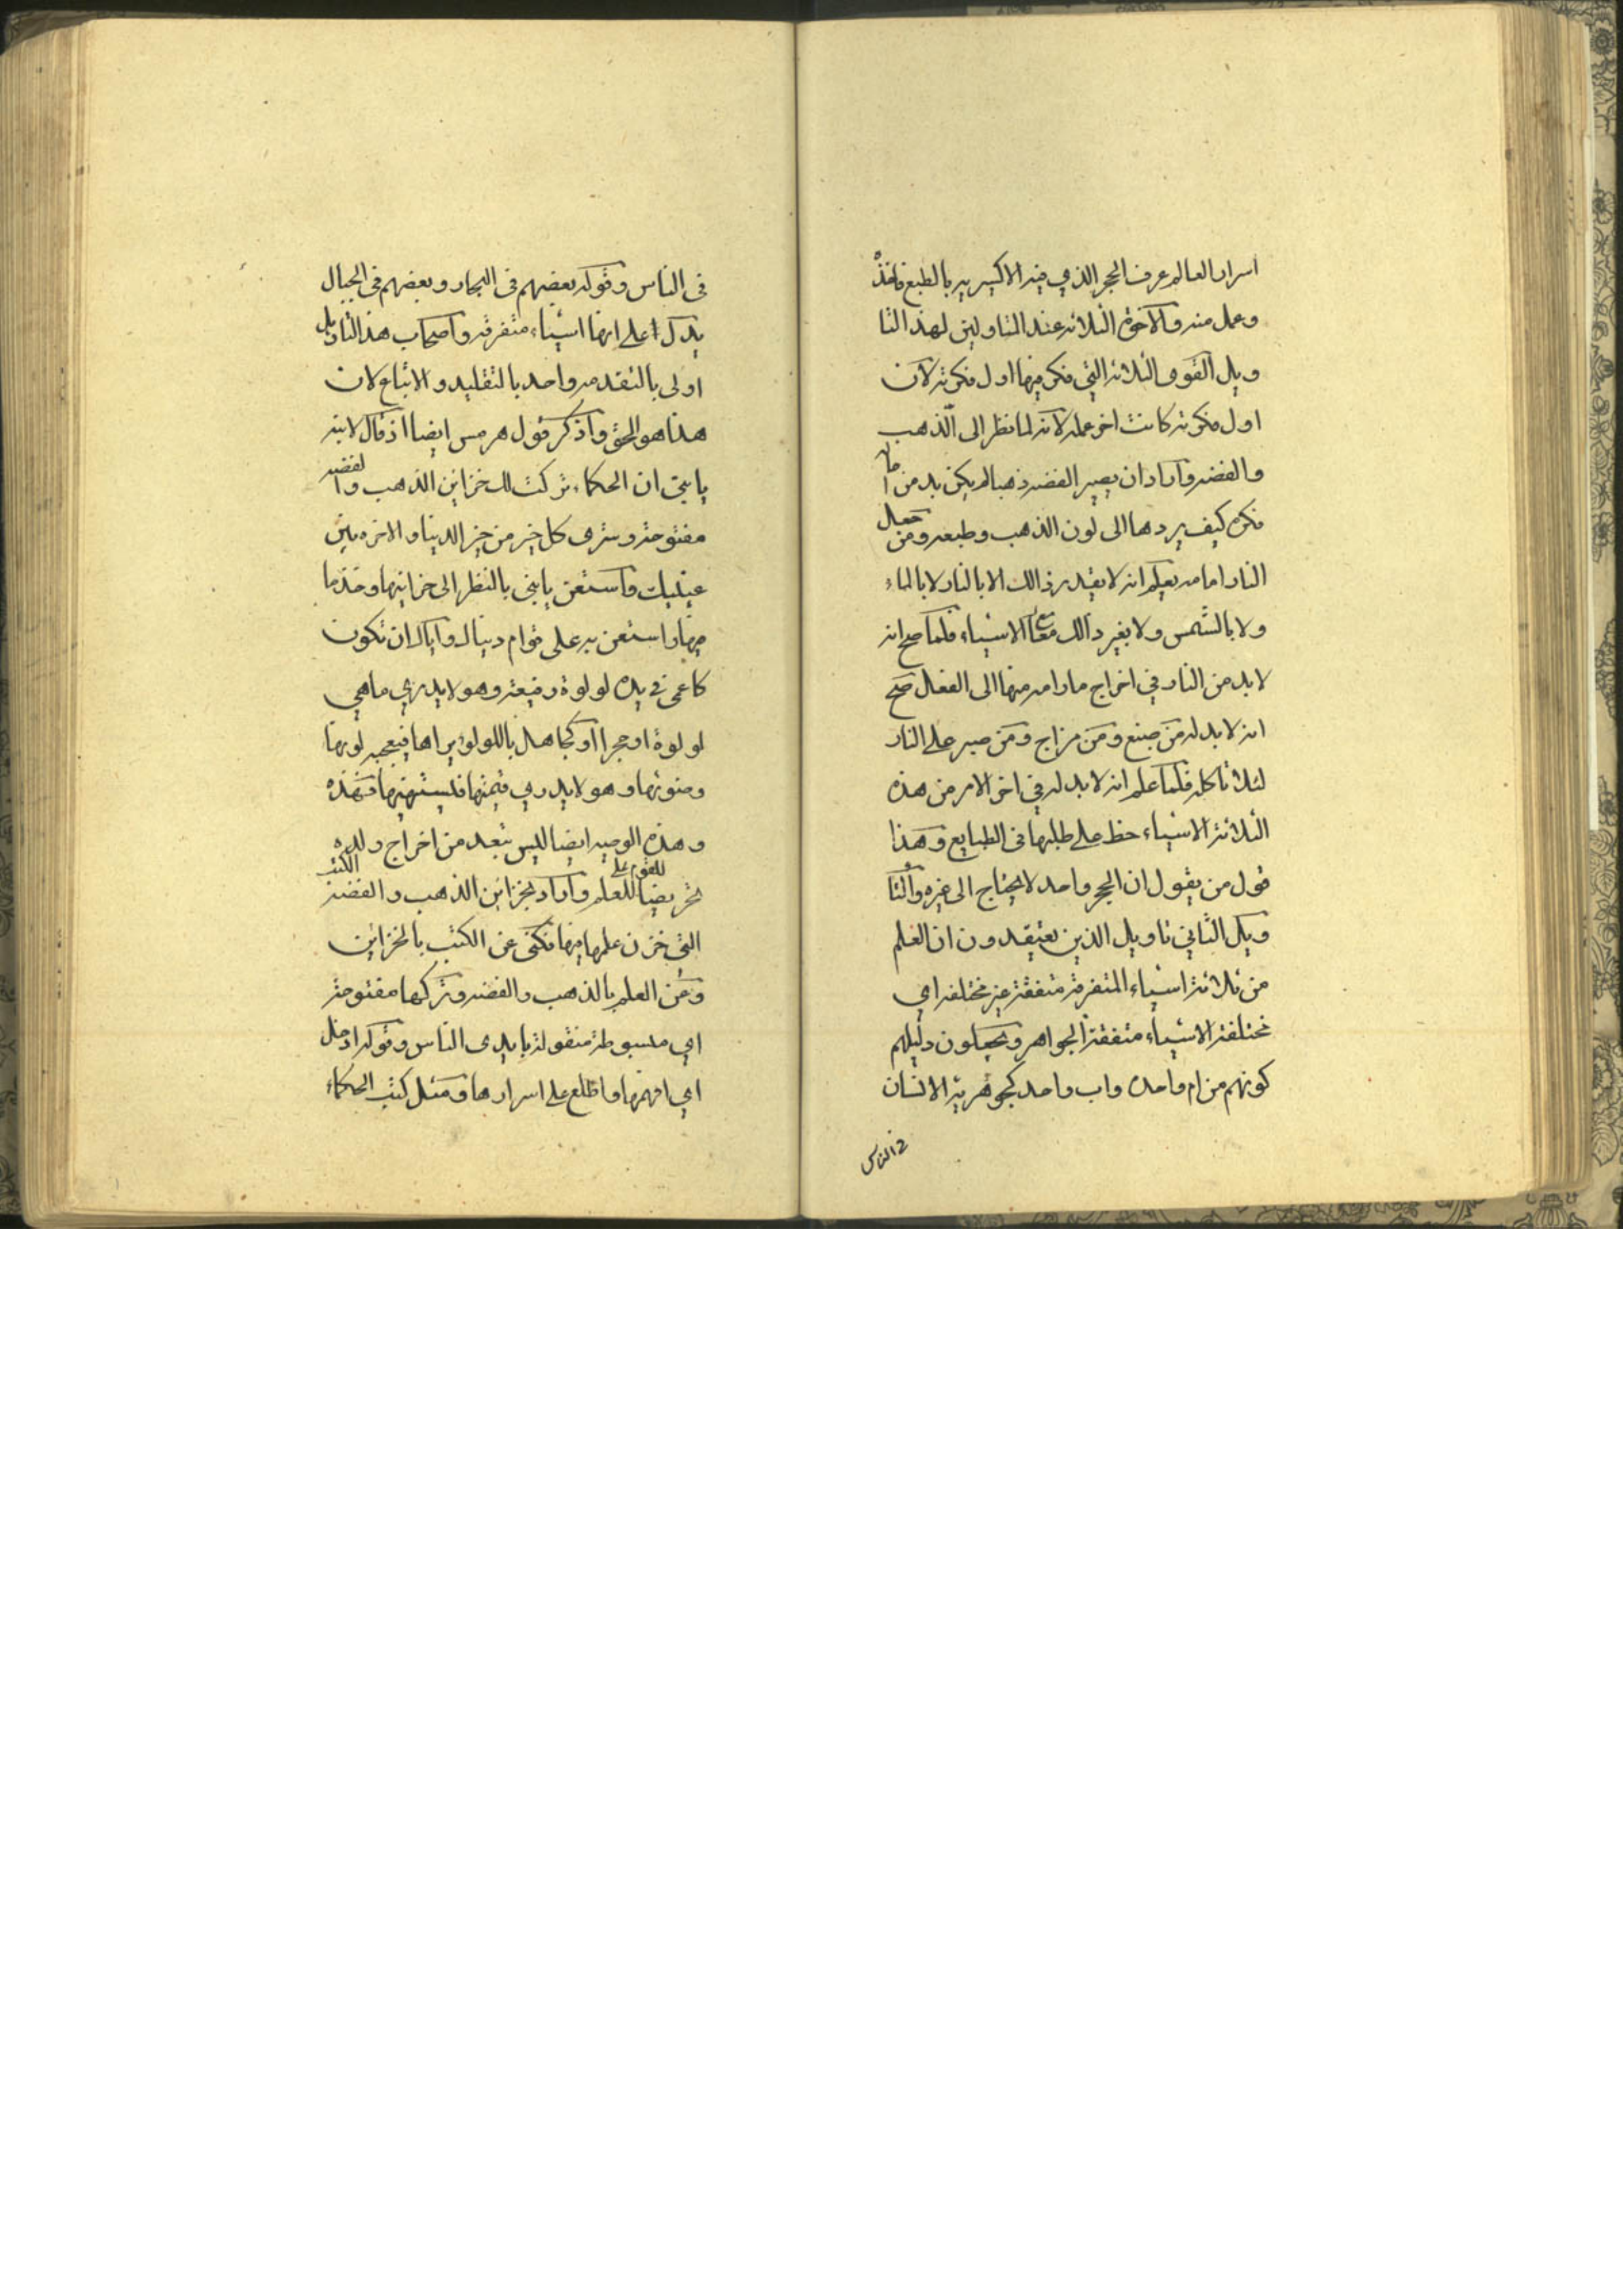 اسرار العالم عرف الحجر الذي فيه الاكسير يه بالطبع فاخذه
وعمل منه والاخوة الثلاثة عند المتاولين لهذا التا
ويل القوى الثلاثة التي فكر فيها اول فكرته لان
اول فكرته كانت اخر عمله لانه لما نظر الى الذهب
والفضه واراد ان يصير الفضه ذهبا لم يكن بد من
فكره كيف يردها الى لون الذهب وطبعه ومن جعل
النار امامه يعلم انه لا يقدر ذالك الا بالنار لا بالماء
ولا بالشمس ولا بغير ذالك من الاشياء فلما صح انه
لا بد من النار في اخراج مارامه منها الى الفعال صح
انه لا بد له من صبغ ومن مزاج ومن صبر على النار
لئلا تاكله فلما علم انه لا بد له في اخر الامر من هذه
الثلاثة الاشياء حظ على طلبها في الطبايع وهذا
قول من يقول ان الحجر واحد لا يحتاج الى غيره والتا
ويل الثاني تاويل الذين يعتقدون ان العلم
من ثلاثة اشياء المتفرقة متفقة غير مختلفه اي
مختلفة الاشياء متفقة الجواهر ويجعلون دليلهم
كونهم من ام واحده واب واحد كجوهرية الانسان
في الناس
في الناس وقوله بعضهم في البحار وبعضهم في الجبال
يدل على انها اشياء متفرقه واصحاب هذا التاويل
اولى بالتقدمه واحد بالتقليد والاتباع لان
هذا هو الحق واذكر قول هرمس ايضا اذ قال لابنه
يا بني ان الحكماء تركت لك خزاين الذهب والفضه
مفتوحة وسترى كل خير من خير الدينا والاخره بين
عينيك فاستعن يا بني بالنظر الى خزاينها وخذ ما
فيها واستعن به على قوام دنياك واياك ان تكون
كاعمى في يده لولوة رفيعة وهو لا يدري ما هي
لولوة او حجرا او كجاهل باللولو يراها فيعجبه لونها
وضوئها وهو لا يدري قيمتها فليستهنيها فهذه
وهذه الوصيه ايضا لليس تبعد من اخراج ولده
تحريضا للعلم واراد بخزاين الذهب والفضة الكتب
التي خزن علمها فيها فكنى عن الكتب بالخزاين
وعن العلم بالذهب والفضه وتركها مفتوحة
اي مبسوطة منقولة بايدى الناس وقوله ادخل
اي افهمها واطلع على اسرارها ومثل كتب الحكماء